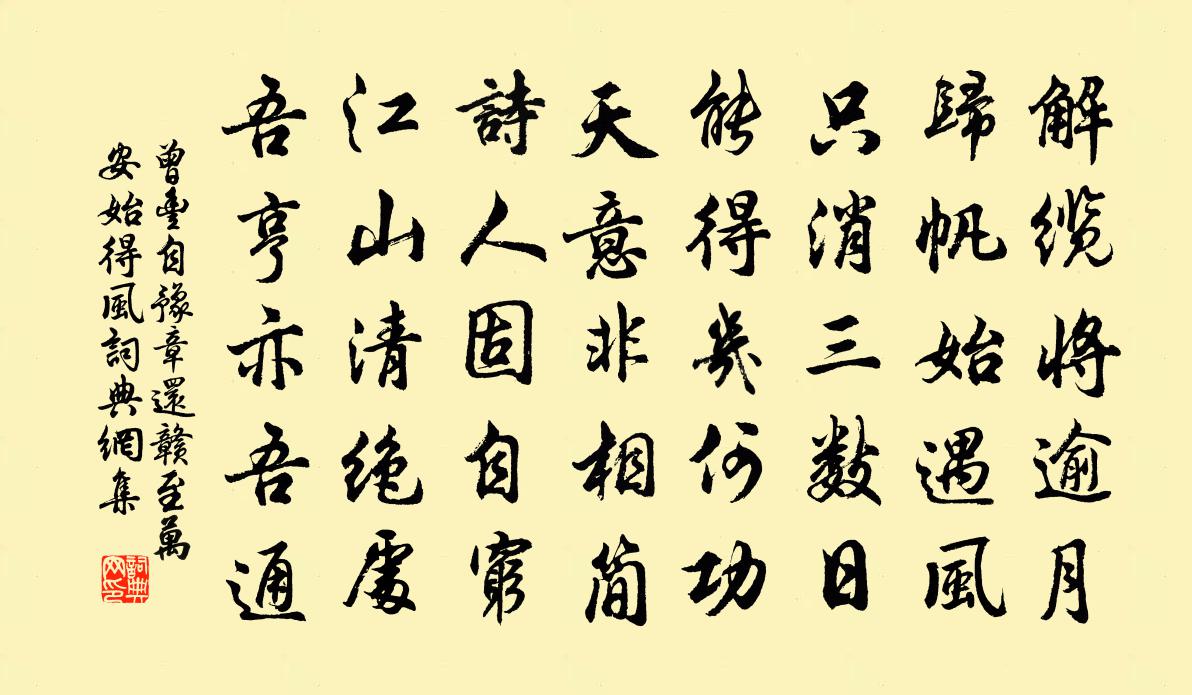 解缆将逾月
歸帆始遇風
只消三數日
能得幾何功
天意非相简
詩人固自窮
江山清絶處
吾亨亦吾通
曾豐自豫章還赣至萬
安始得風詞典網集
詞典
网印